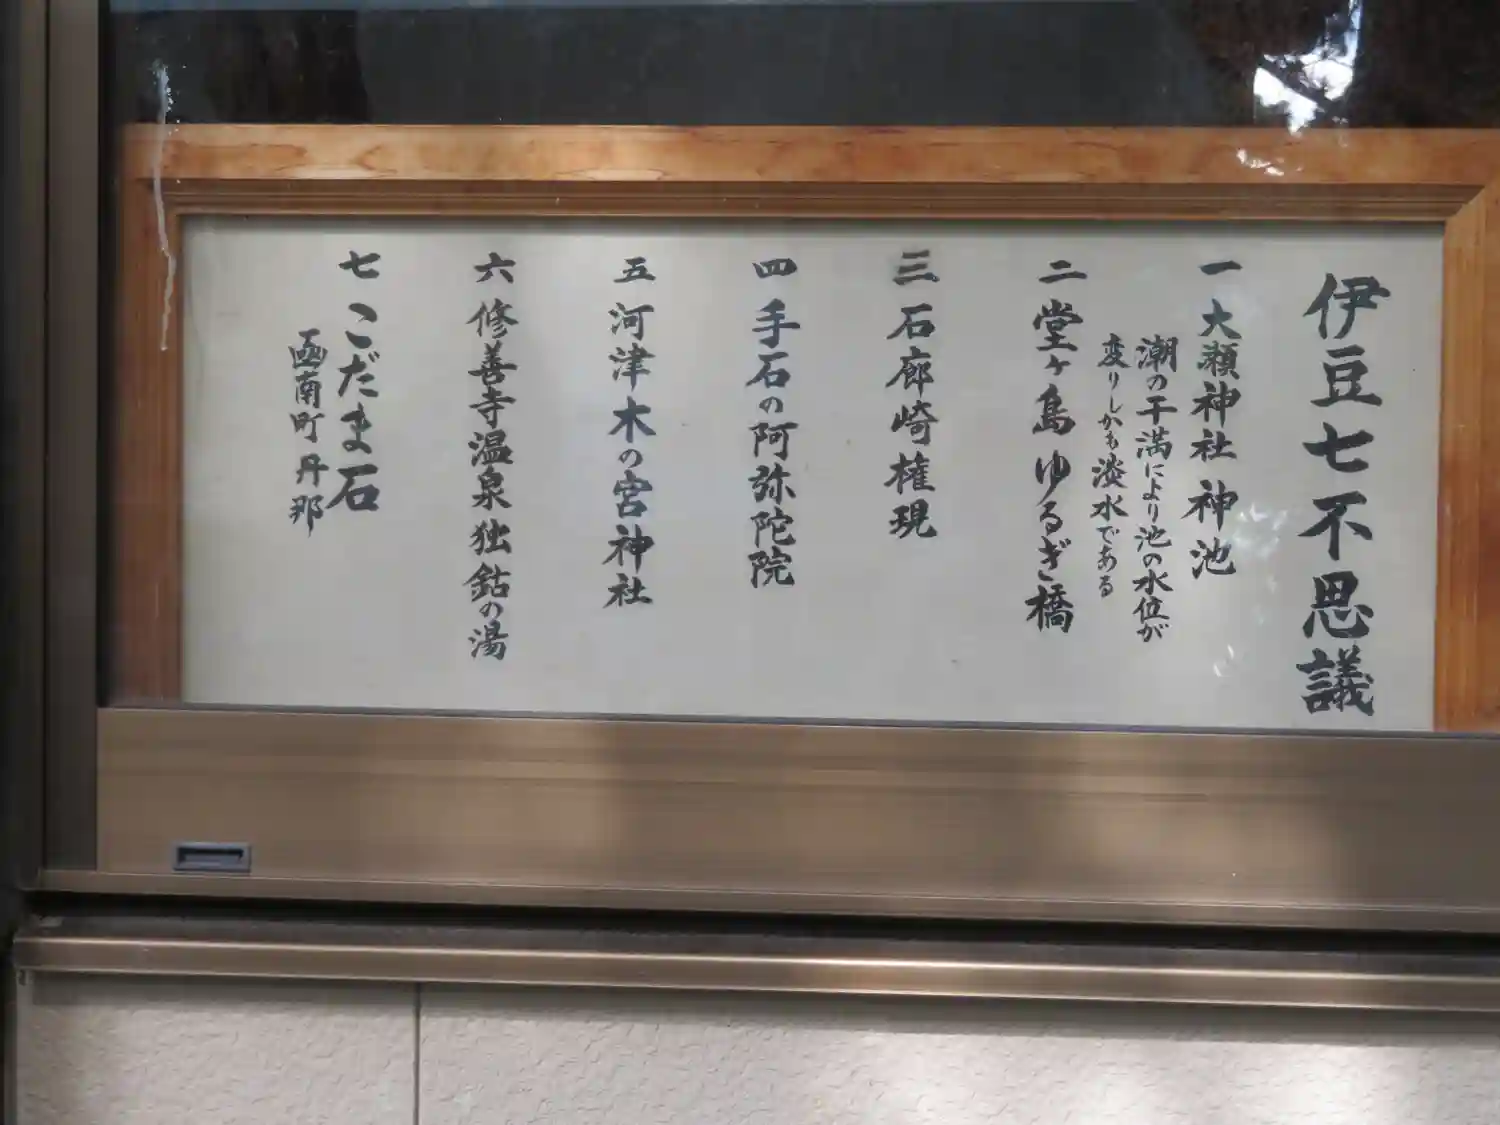 伊豆七不思議
一 大瀬神社 神池
潮の干満により池の水位が
変りしかも淡水である
二 堂ヶ島ゆるぎ橋
三 石廊崎権現
四 手石の阿弥陀院
五 河津木の宮神社
六 修善寺温泉独鈷の湯
七 こだま石
函南町 丹那